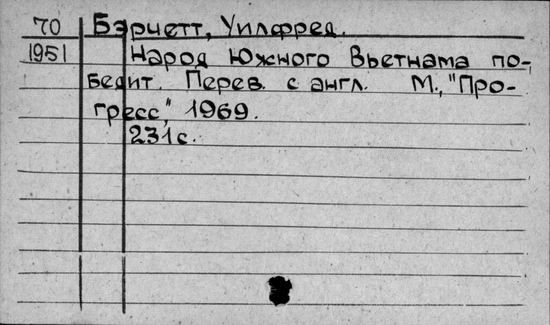 70 Бэрчетт, Уилфред.
1951 Народ Южного Вьетнама по-
бедит. Перев. с англ. М., "Про-
гресс", 1969.
231с.